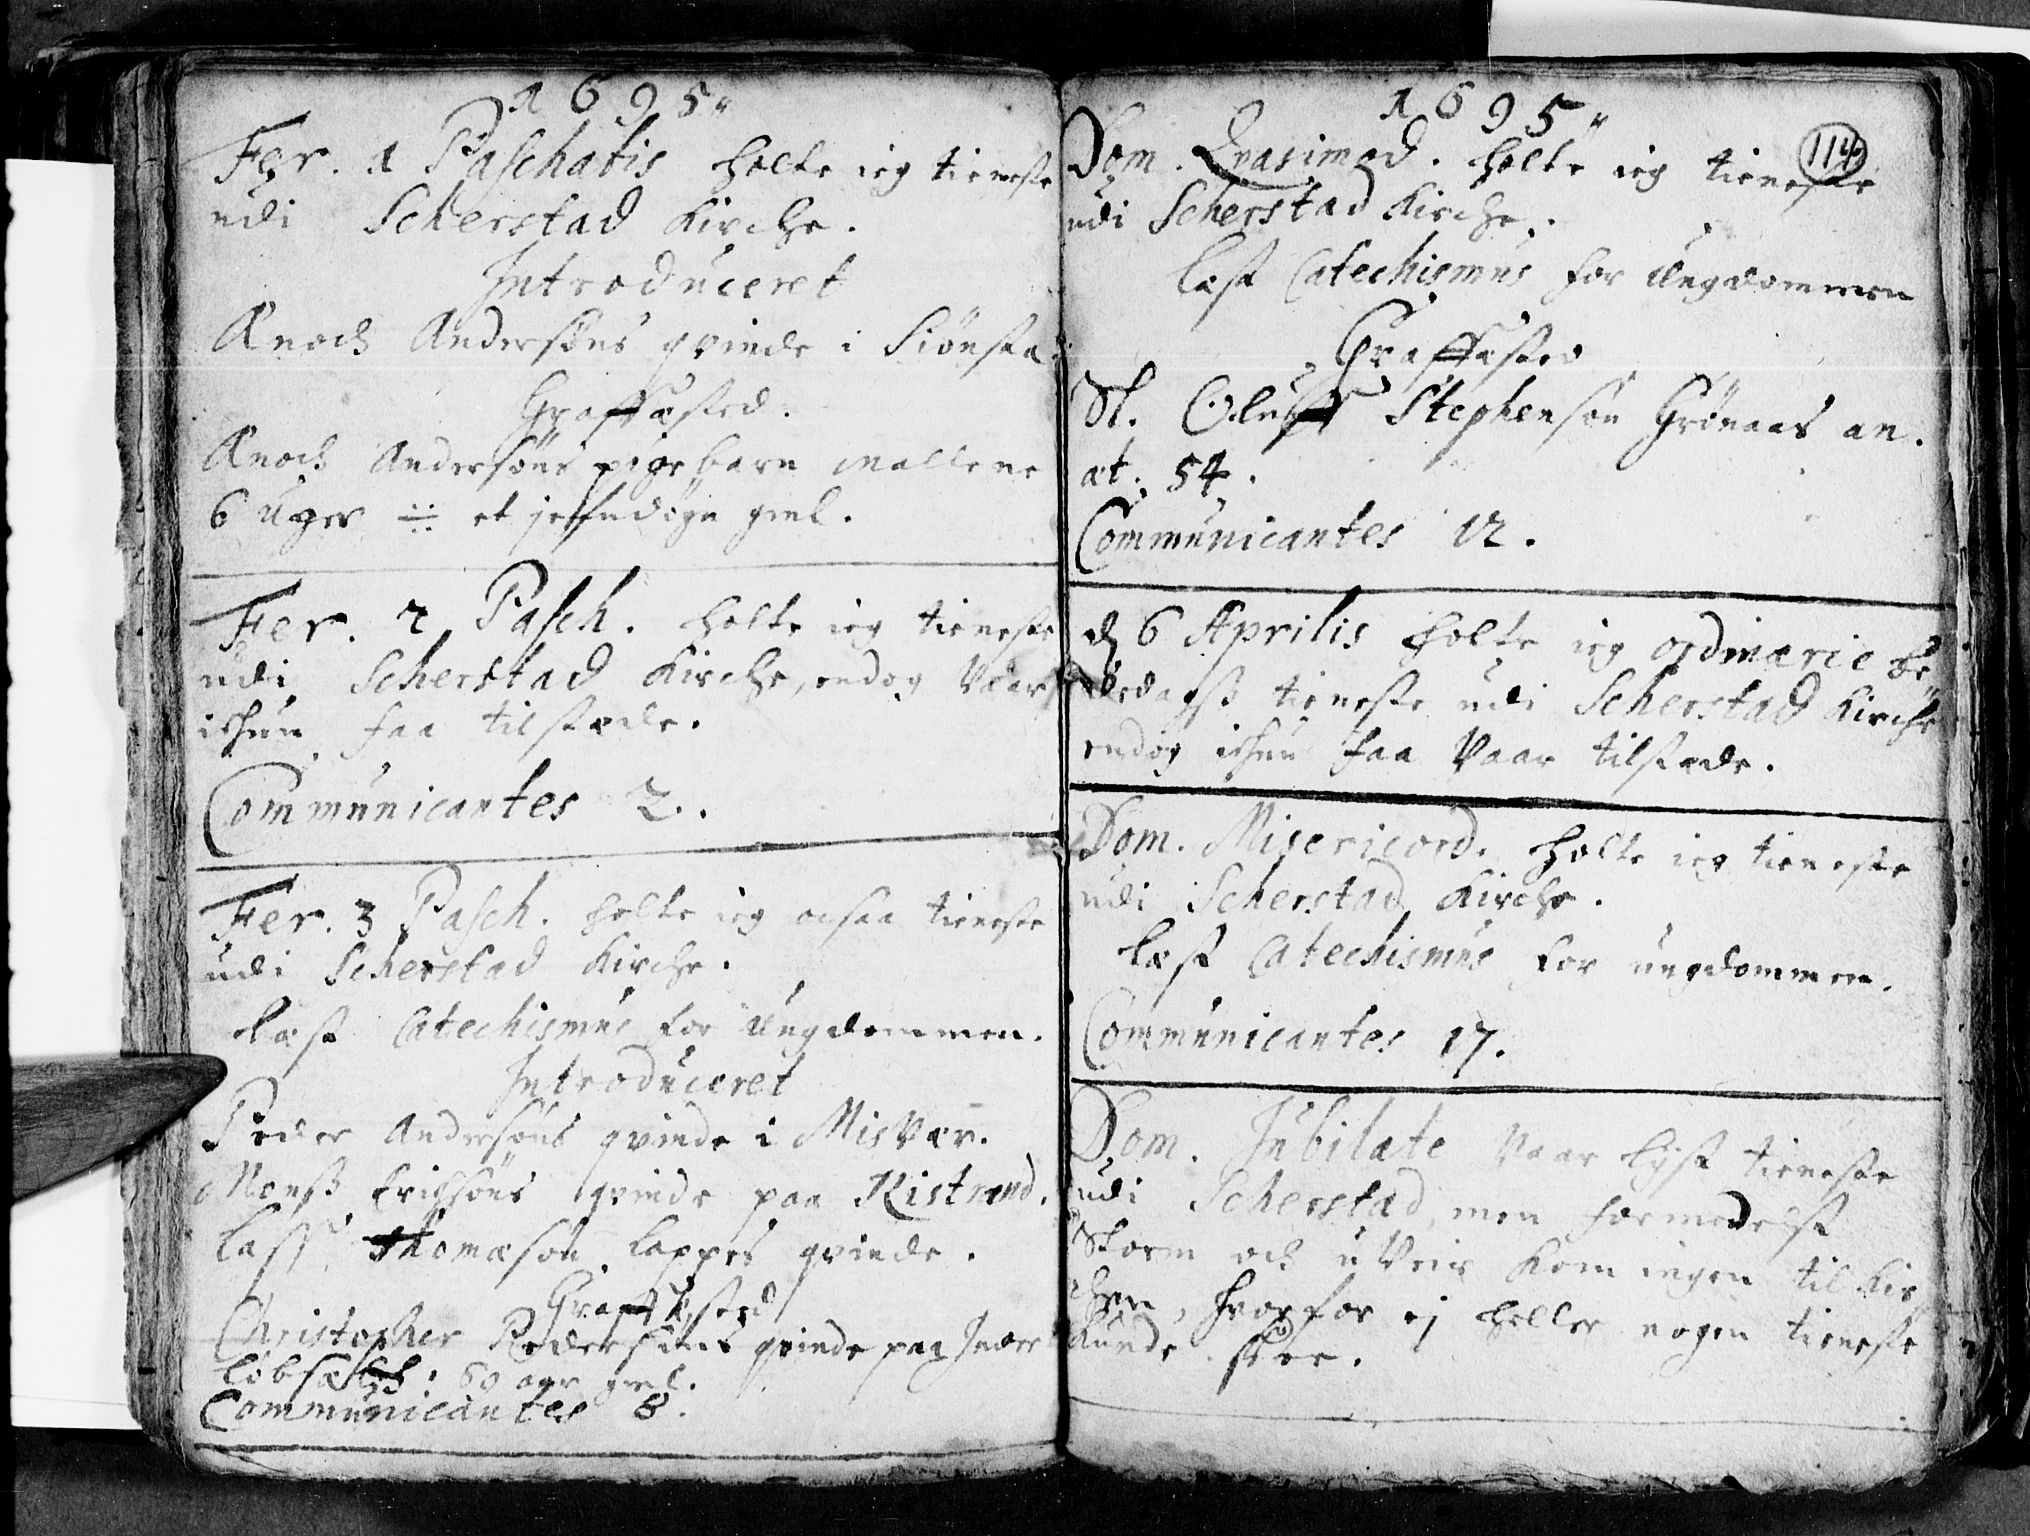 1695
Fer. 1 Paschatis holte ieg tieneste
udi Scherstad Kirche.
Introduceret
Ænoch Andersøns qvinde i Siønsta
Graffæsted.
Ænoch Andersøns pigebarn Mallene
6 Uger ÷ et jeffndøgn gml.
Fer. 2 Pasch. holte ieg tieneste
udi Scherstad Kirche, endog Vaar
ichun faa tilstæde.
Communicantes 2.
Fer. 3 Pasch. holte ieg ocsaa tieneste
udi Scherstad Kirche.
læst Catechismus for Ungdommen.
Introduceret
Peder Andersøns qvinde i Misvær.
Monsß Erichsøns qvinde paa Kistrand.
Lass Thomæsøn Lappes qvinde.
Graffæsted
Christopher Pedersøns qvinde paa
60 aar gml.
Communicantes 8.
1695
114
Dom. Qvasimod. holte ieg tieneste
udi Scherstad Kirche.
læst Catechismus for Ungdommen
Graffæsted
Sl. Oluff Stephensøn Grönaas an.
æt. 54.
Communicantes 12.
d 6 Aprilis holte ieg ordinarie Be
dedagß tieneste udi Scherstad Kirche
endog ichun faa Vaar tilstæde.
Dom. Misericord. holte ieg tieneste
udi Scherstad Kirche.
læst Catechismus for ungdommen.
Communicantes 17.
Dom. Jubilate Vaar lyst tieneste
udi Scherstad, men formedelst
Storm och uVeir Kom ingen til Kir
chen, hvorfor ej heller nogen tieneste
Kunde skee.